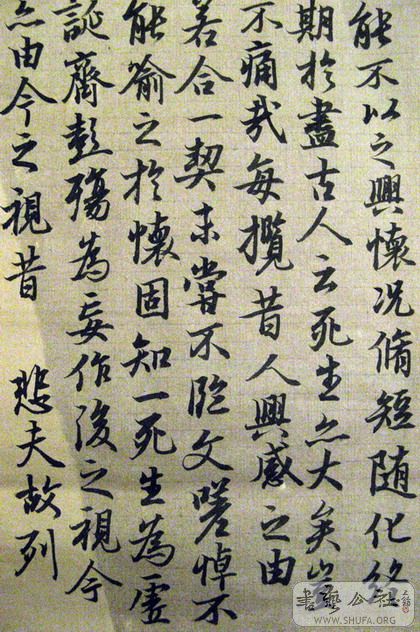 能不以之興懷况脩短随化終
期於盡古人云死生亦大矣豈
不痛哉每攬昔人興感之由
若合一契未嘗不臨文嗟悼不
能喻之於懷固知一死生為虛
誕齊彭殤為妄作後之視今
亦由今之視昔 悲夫故列
書藝公社
WWW.SHUFA.ORG